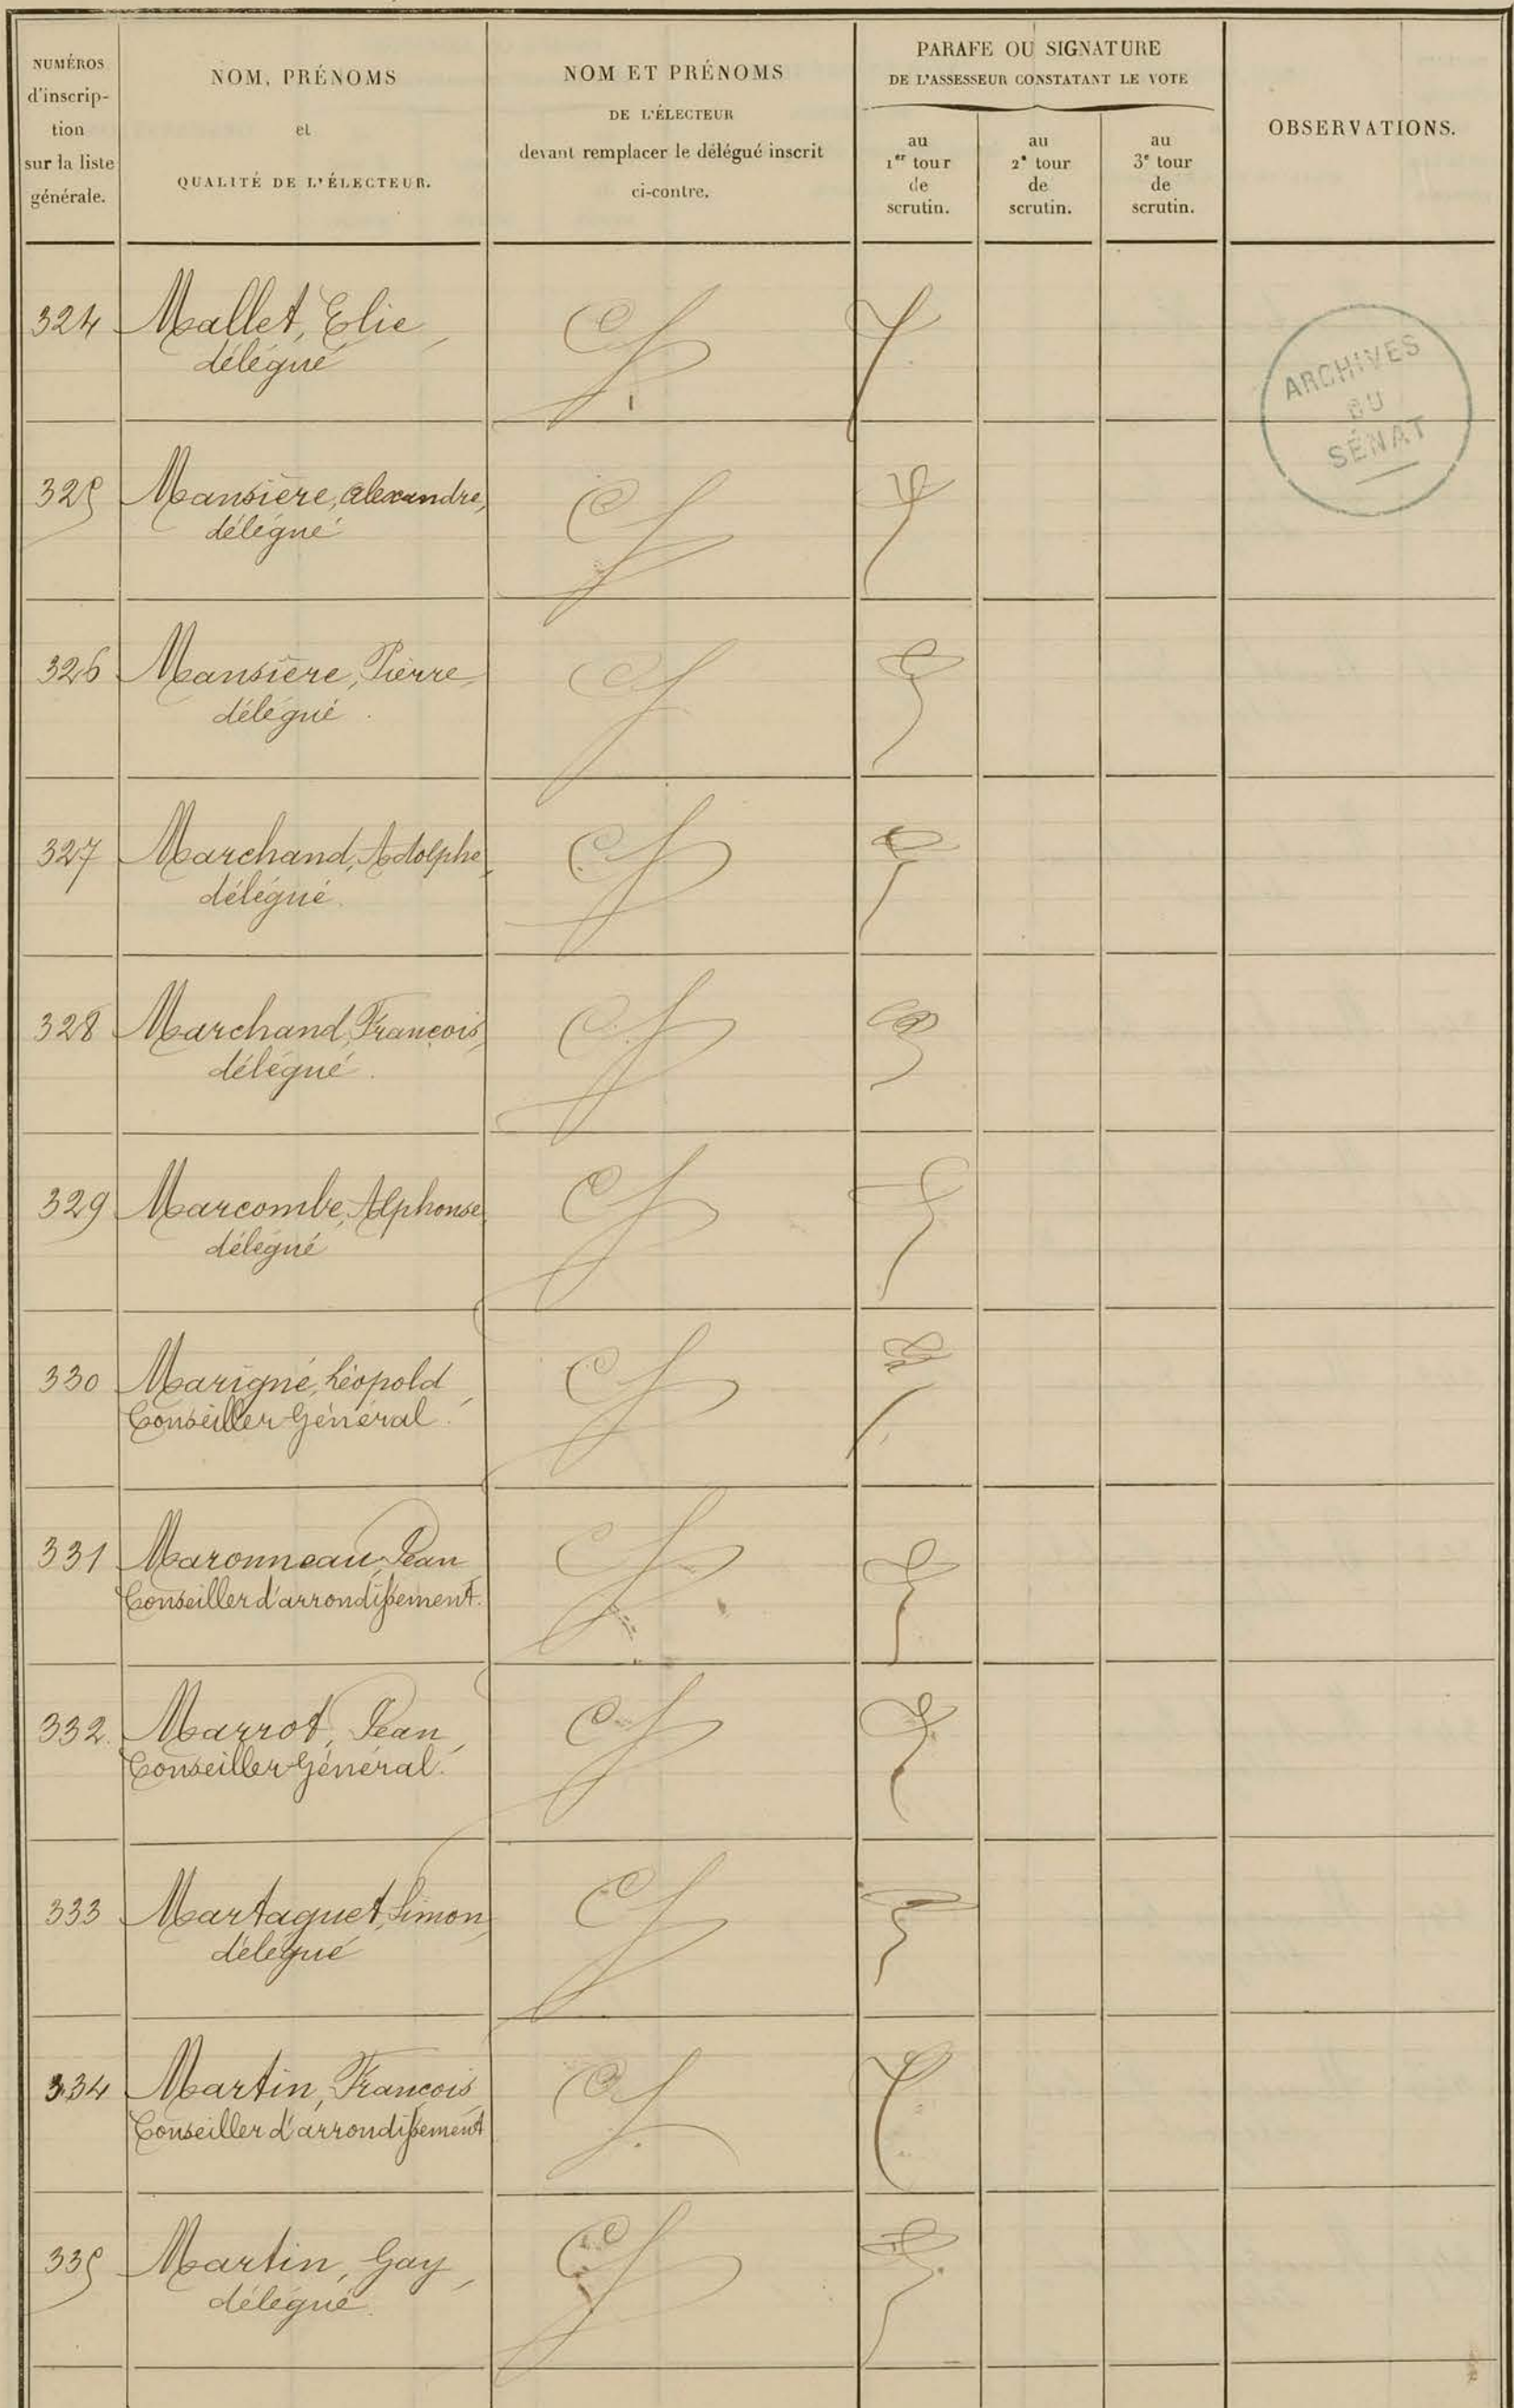 NUMÉROS
d'inscrip-
tion
sur la liste
générale.
NOM, PRÉNOMS
et
QUALITÉ DE L'ÉLECTEUR.
NOM ET PRÉNOMS
DE L'ÉLECTEUR
devant remplacer le délégué inscrit
ci-contre.
PARAFE OU SIGNATURE
DE L'ASSESSEUR CONSTATANT LE VOTE
au
1er tour
de
scrutin.
au
2e tour
de
scrutin.
au
3e tour
de
scrutin.
OBSERVATIONS.
324 Mallet, Elie,
délégué
ARCHIVES
DU
SÉNAT
325 Mansière, Alexandre,
délégué
326 Mansière, Pierre,
délégué.
327 Marchand, Adolphe,
délégué.
328 Marchand, François,
délégué.
329 Marcombe, Alphonse,
délégué
330 Marigné, Léopold,
Conseiller Général.
331 Maronneau, Jean
Conseiller d'arrondissement.
332. Marrot, Jean,
Conseiller Général.
333 Martaguet, Simon,
délégué
334 Martin, François,
Conseiller d'arrondissement
335 Martin, Gay,
délégué.